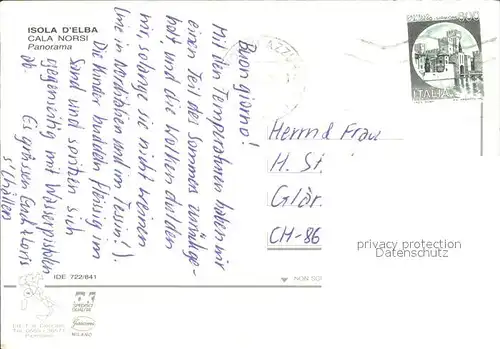 ISOLA D'ELBA
CALA NORSI
Panorama
Buon giorno!
Mit den Temperaturen haben wir
einen Teil des Sommers zurückge-
holt, und die Wolken dulden
wir, solange sie nicht weinen
(wie in Norditalien und im Tessin!).
Die Kinder buddeln fleissig im
Sand und spritzen sich
gegenseitig mit Wasserpistolen
Es grüssen Euch
IDE 722/841
800
ITALIA
Herrn d Frau
H. St
Glär
CH-86
privacy protection
Datenschutz
NON SC
MILANO